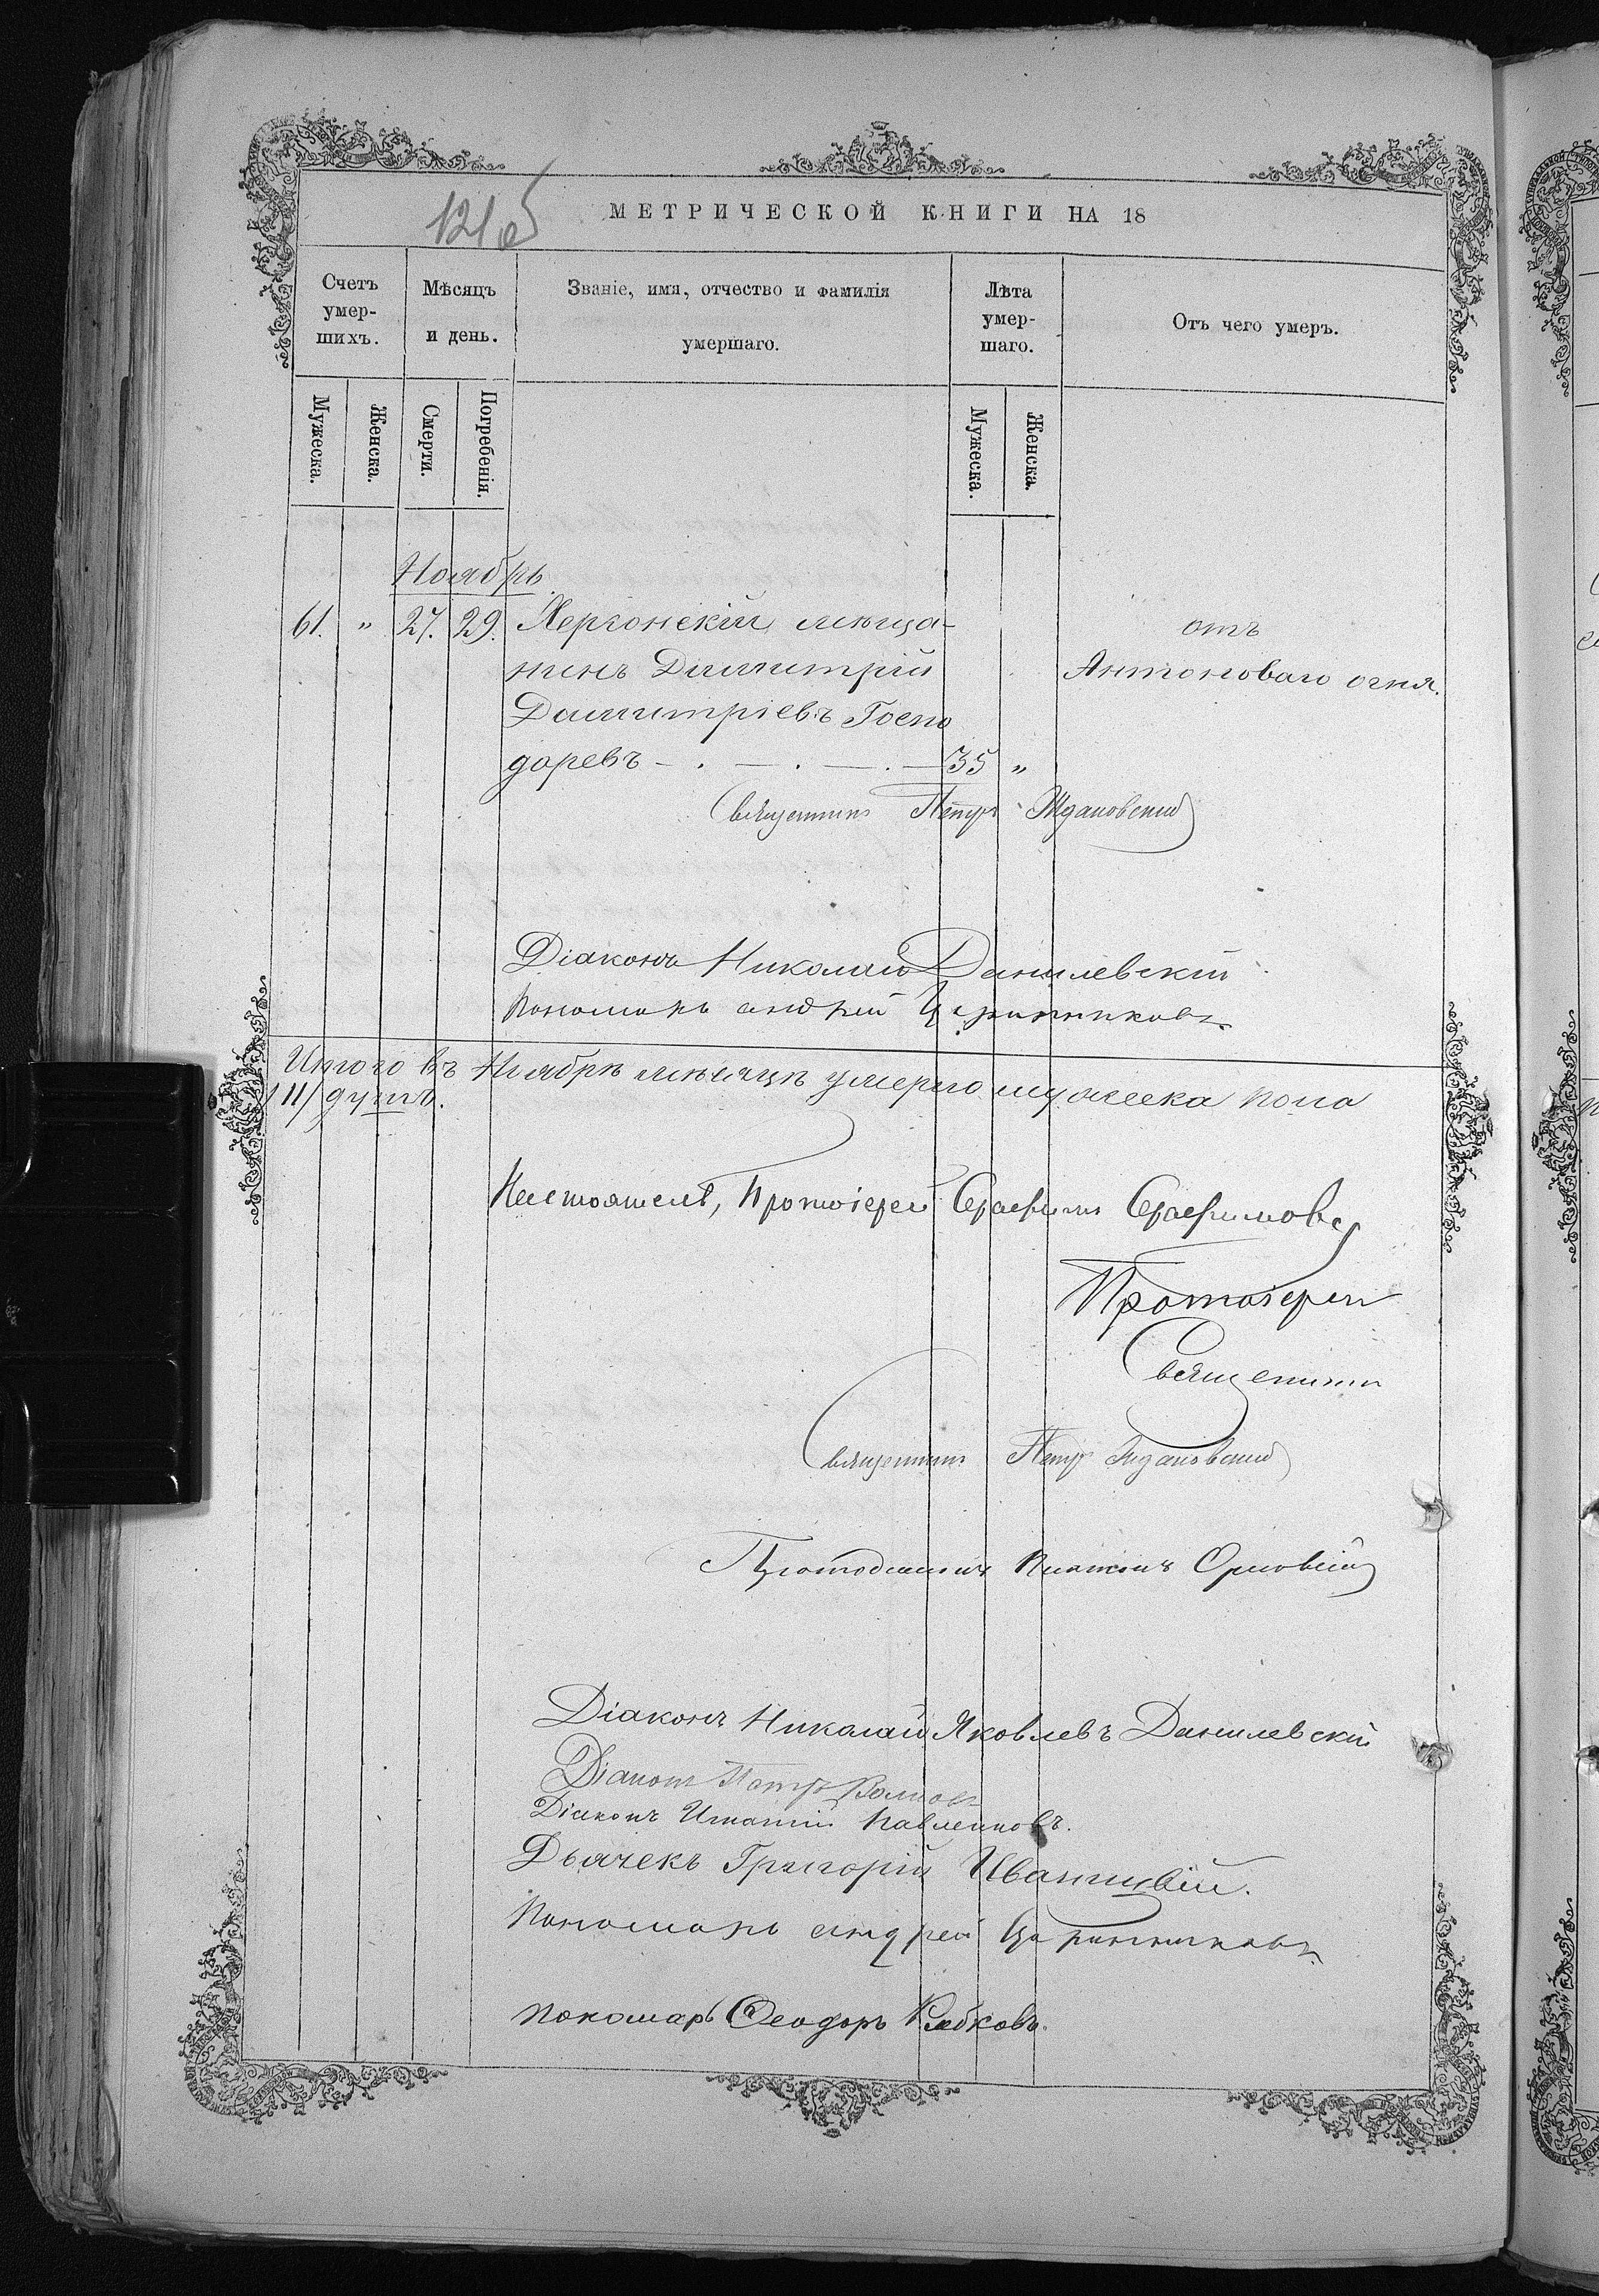 121об
МЕТРИЧЕСКОЙ КНИГИ НА 18
Счетъ умер-шихъ.
Мѣсяцъ и день.
Званіе, имя, отчество и фамилія умершаго.
Лѣта умер-шаго.
Отъ чего умеръ.
Мужеска.
Женска.
Смерти.
Погребенія.
Мужеска.
Женска.
Ноябрь
61. " 27. 29. Херсонскій мѣща- отъ
нинъ Димитрій Антоноваго огня.
Димитріевъ Госпо
даревъ 35 "
Священникъ Петръ Ждановскій
Діаконъ Николай Данилевскій
Пономарь Андрей
Итого въ Ноябрѣ мѣсяцѣ умерло мужеска пола
11/ душъ.
Настоятель, Протоіерей Серафимъ Серафимовъ
Протоіерей
Священникъ
Священникъ Петръ Ждановскій
Протодіаконъ Платонъ Орловскій
Діаконъ Николай Яковлевъ Данилевскій
Діаконъ Петръ Волковъ
Діаконъ Игнатій Павленковъ.
Дьячекъ Григорій Иваницкій.
Пономарь Андрей
Пономарь Ѳеодоръ Рябковъ.